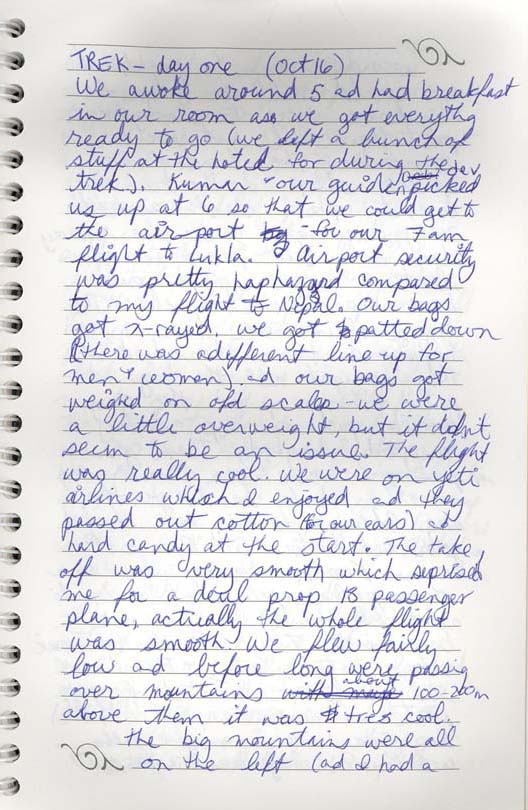 TREK - day one (Oct 16)
We awoke around 5 ad had breakfast
in our room as we got everythg
ready to go (we left a bunch of
stuff at the hotel for during the
trek). Kumar - our guide picked
us up at 6 so that we could get to
the airport for our 7 am
flight to Lukla. Airport security
was pretty haphazard compared
to my flight to Nepal. Our bags
got x-rayed, we got patted down
(there was a different line up for
men + women) ad our bags got
weighed on old scales - we were
a little overweight, but it didn't
seem to be an issue. The flight
was really cool. We were on Yeti
airlines which I enjoyed ad they
passed out cotton (for our ears) ad
hard candy at the start. The take
off was very smooth which suprised
me for a deul prop 18 passenger
plane, actually the whole flight
was smooth. We flew fairly
low ad before long were passig
over mountains about 100-200m
above them it was tres cool.
The big mountains were all
on the left (ad I had a